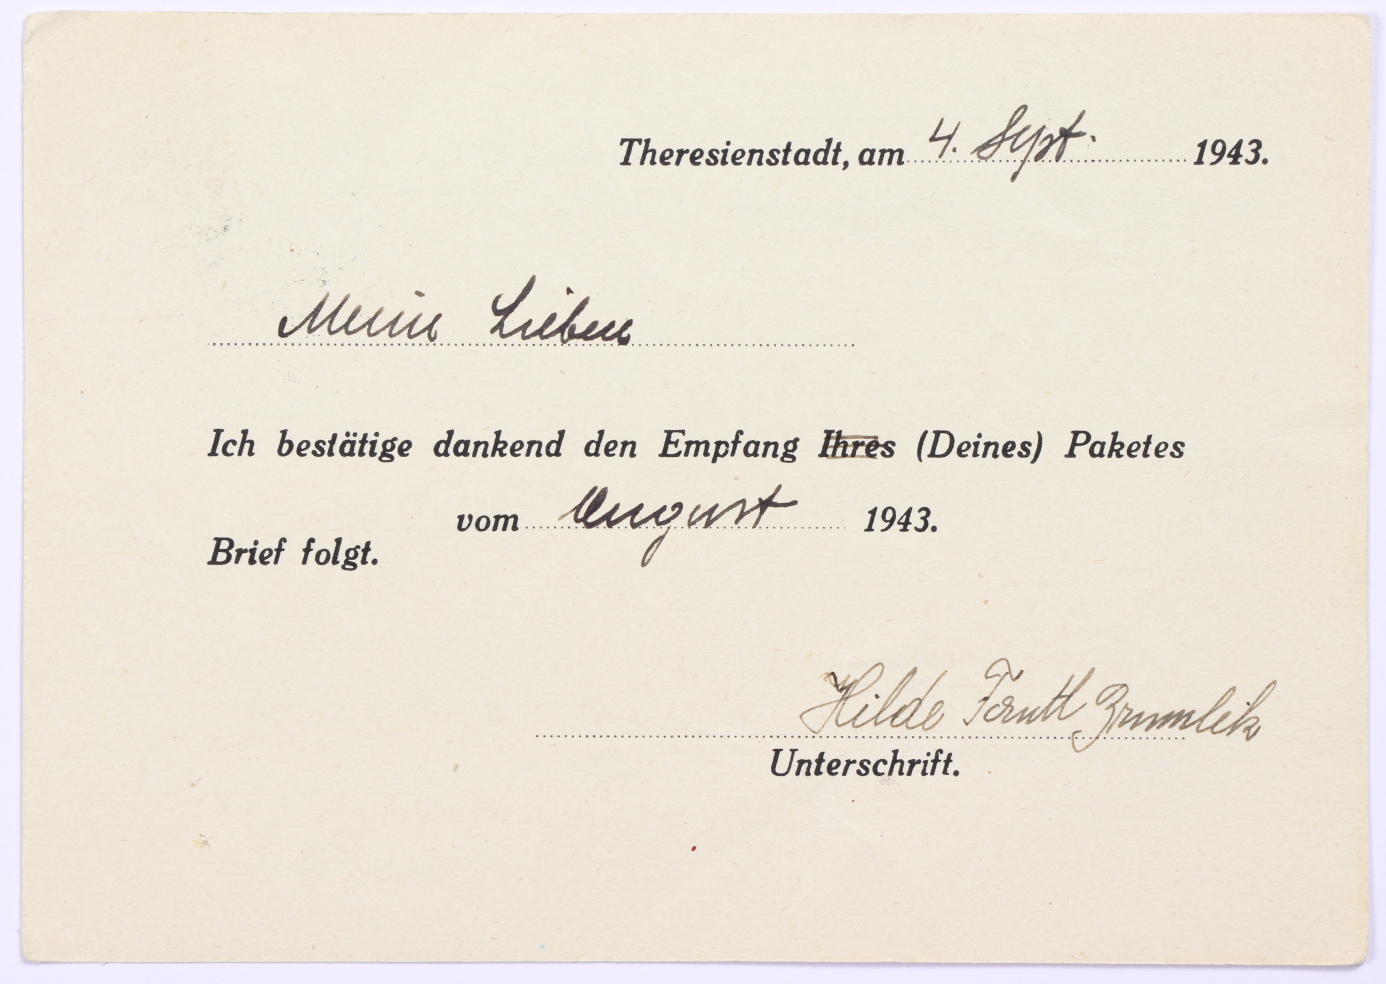 Theresienstadt, am 4. Sept. 1943.
Meine Lieben
Ich bestätige dankend den Empfang Ihres (Deines) Paketes
vom August 1943.
Brief folgt.
Hilde Zrumlik
Unterschrift.